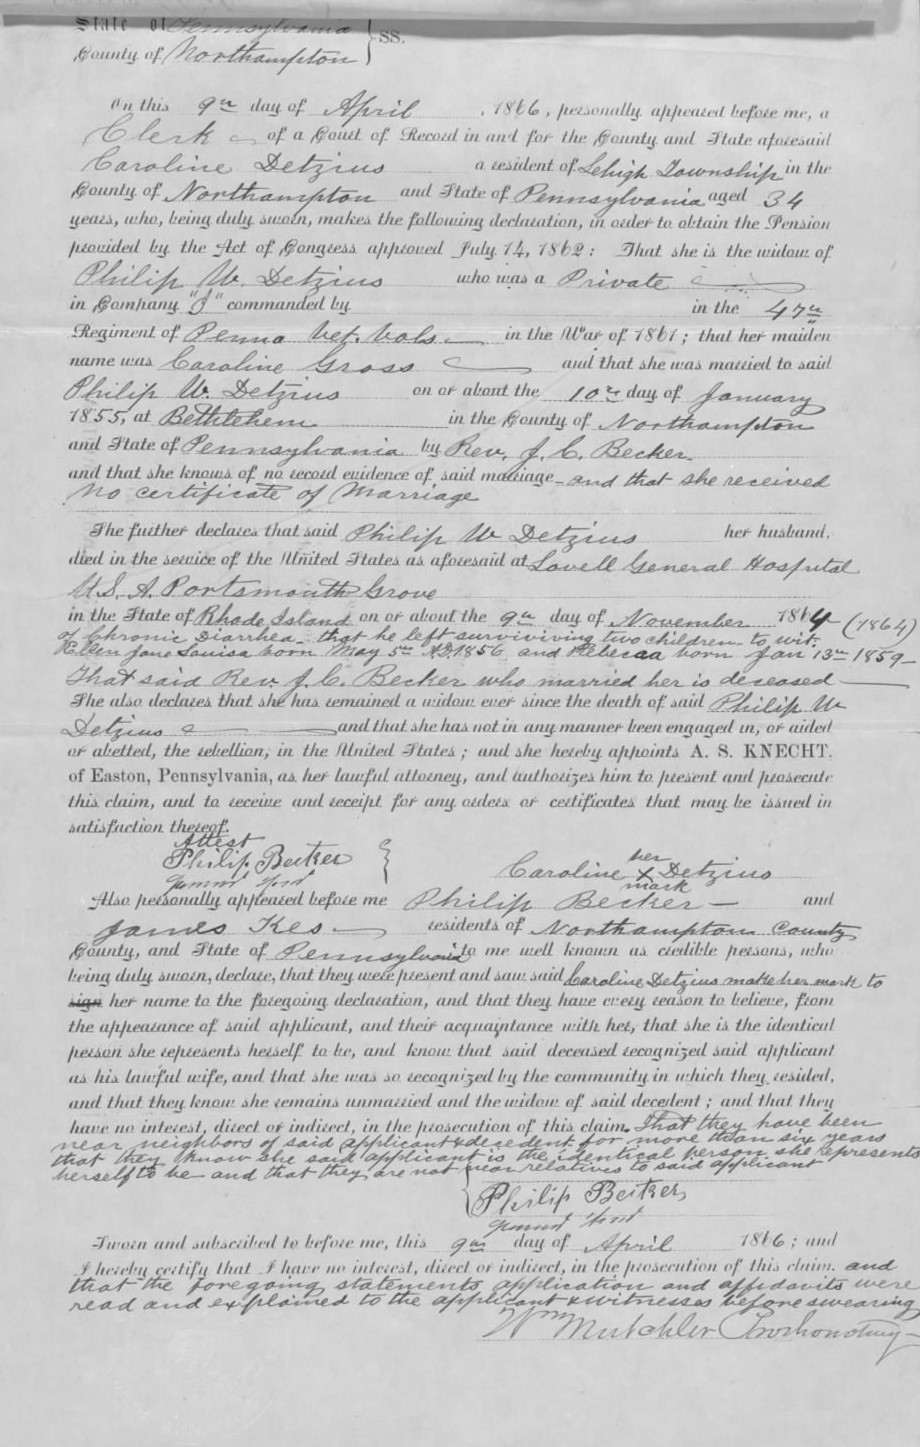 State of Pennsylvania
County of Northampton } SS.
On this 9th day of April, 1866, personally appeared before me, a
Clerk of a Court of Record in and for the County and State aforesaid
Caroline Detzius a resident of Lehigh Township in the
County of Northampton and State of Pennsylvania aged 34
years, who, being duly sworn, makes the following declaration, in order to obtain the Pension
provided by the Act of Congress approved July 14, 1862: That she is the widow of
Philip W. Detzius who was a Private
in Company "I" commanded by in the 47th
Regiment of Penna Vet. Vols in the War of 1861; that her maiden
name was Caroline Gross and that she was married to said
Philip W. Detzius on or about the 10th day of January
1855, at Bethlehem in the County of Northampton
and State of Pennsylvania by Rev. J. C. Becker.
and that she knows of no record evidence of said marriage - and that she received
no certificate of Marriage
She further declares that said Philip W Detzius her husband,
died in the service of the United States as aforesaid at Lovell General Hospital
U.S.A. Portsmouth Grove
in the State of Rhode Island on or about the 9th day of November 1864 (1864)
of Chronic Diarrhea - that he left surviviving two children to wit.
Ellen Jane Louisa born May 5th AD. 1856 and Rebecca born Jan 13th 1859 -
That said Rev. J. C. Becker who married her is deceased
She also declares that she has remained a widow ever since the death of said Philip W
Detzius and that she has not in any manner been engaged in, or aided
or abetted, the rebellion, in the United States; and she hereby appoints A. S. KNECHT.
of Easton, Pennsylvania, as her lawful attorney, and authorizes him to present and prosecute
this claim, and to receive and receipt for any orders or certificates that may be issued in
satisfaction thereof.
Attest
Philip Beitzer }
Caroline her X mark Detzius
Also personally appeared before me Philip Becker - and
James Kes residents of Northampton County
County, and State of Pennsylvania to me well known as credible persons, who
being duly sworn, declare, that they were present and saw said Caroline Detzius make her mark to
sign her name to the foregoing declaration, and that they have every reason to believe, from
the appearance of said applicant, and their acquaintance with her, that she is the identical
person she represents herself to be, and know that said deceased recognized said applicant
as his lawful wife, and that she was so recognized by the community in which they resided,
and that they know she remains unmarried and the widow of said decedent; and that they
have no interest, direct or indirect, in the prosecution of this claim. That they have been
near neighbors of said applicant & decedent for more than six years
that they know she said applicant is the identical person she represents
herself to be and that they are not near relatives to said applicant
Philip Beitzer
Sworn and subscribed to before me, this 9th day of April 1866; and
I hereby certify that I have no interest, direct or indirect, in the prosecution of this claim. and
that the foregoing statements application and affidavits were
read and explained to the applicant & witnesses before swearing
Wm Mutchler Prothonotary